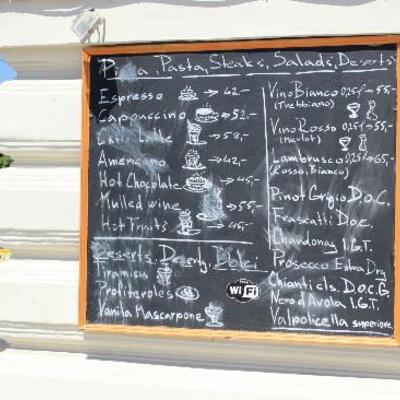 Pizza, Pasta, Steaks, Salads, Deserts
Espresso → 42,-
Capouccino → 52,-
Caffe Latte → 58,-
Americano → 42,-
Hot Chocolate → 45,-
Mulled wine → 55,-
Hot Fruits → 45,-
Deserts, Dezerty, Dolci
Tiramisu
Profiteroles
Vanila Mascarpone
WiFi
Vino Bianco 0,25l → 55,-
(Trebbiano)
Vino Rosso 0,25l → 55,-
(Merlot)
Lambrusco 0,25l → 65,-
(Rosso, Bianco)
Pinot Grigio D.O.C.
Frascatti D.o.c.
Chardonay I.G.T.
Prosecco Extra Dry
Chianti cls. D.o.c.G.
Nero d'Avola I.G.T.
Valpolicella superiore